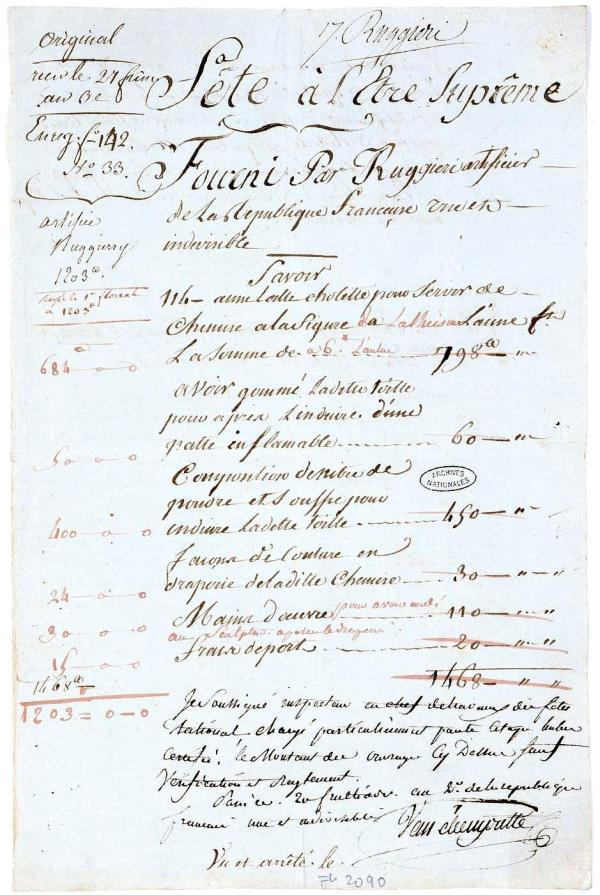 Original
17 Ruggieri
reçu le 27 frim.
an 3e
Enreg. fo. 142.
No. 33.
Fête à l'Être Suprême
Fourni Par Ruggieri artificier
de La République Française une et
indivisible
artifice
Ruggierry
1203
Reglé le 1er floreal
à 1203
Savoir
114 aune toille cholette pour servir de
Chemise a la figure L'aune
La somme de a 6 L'aulne 798
684 - 0 - 0
avoir gommé Ladette toille
pour apres L'induire d'une
patte inflamable 60 - "
50 - 0 - 0
Composition de nitre de
poudre et Souffre pour
induire Ladette toille 450 - "
ARCHIVES
NATIONALES
400 - 0 - 0
façons de Couture en
draperie de ladille Chemise 30 - " - "
24 - 0 - 0
Mains d'œuvre pour avoir 110 - "
30 - 0 - 0
au
frais de port 20 - " "
15 - 0 - 0
1468 - " "
1468
1203 = 0 - 0
Je soussigné inspecteur en chef des travaux des fêtes
national chargé particulièrement
certifié le Montant des ouvrages Cy Dessus sauf
Vérification et Reglement.
Paris ce 20 fructidor au 2e. de la republique
francaise une et indivisible
Vu et arrêté le
F4 2090